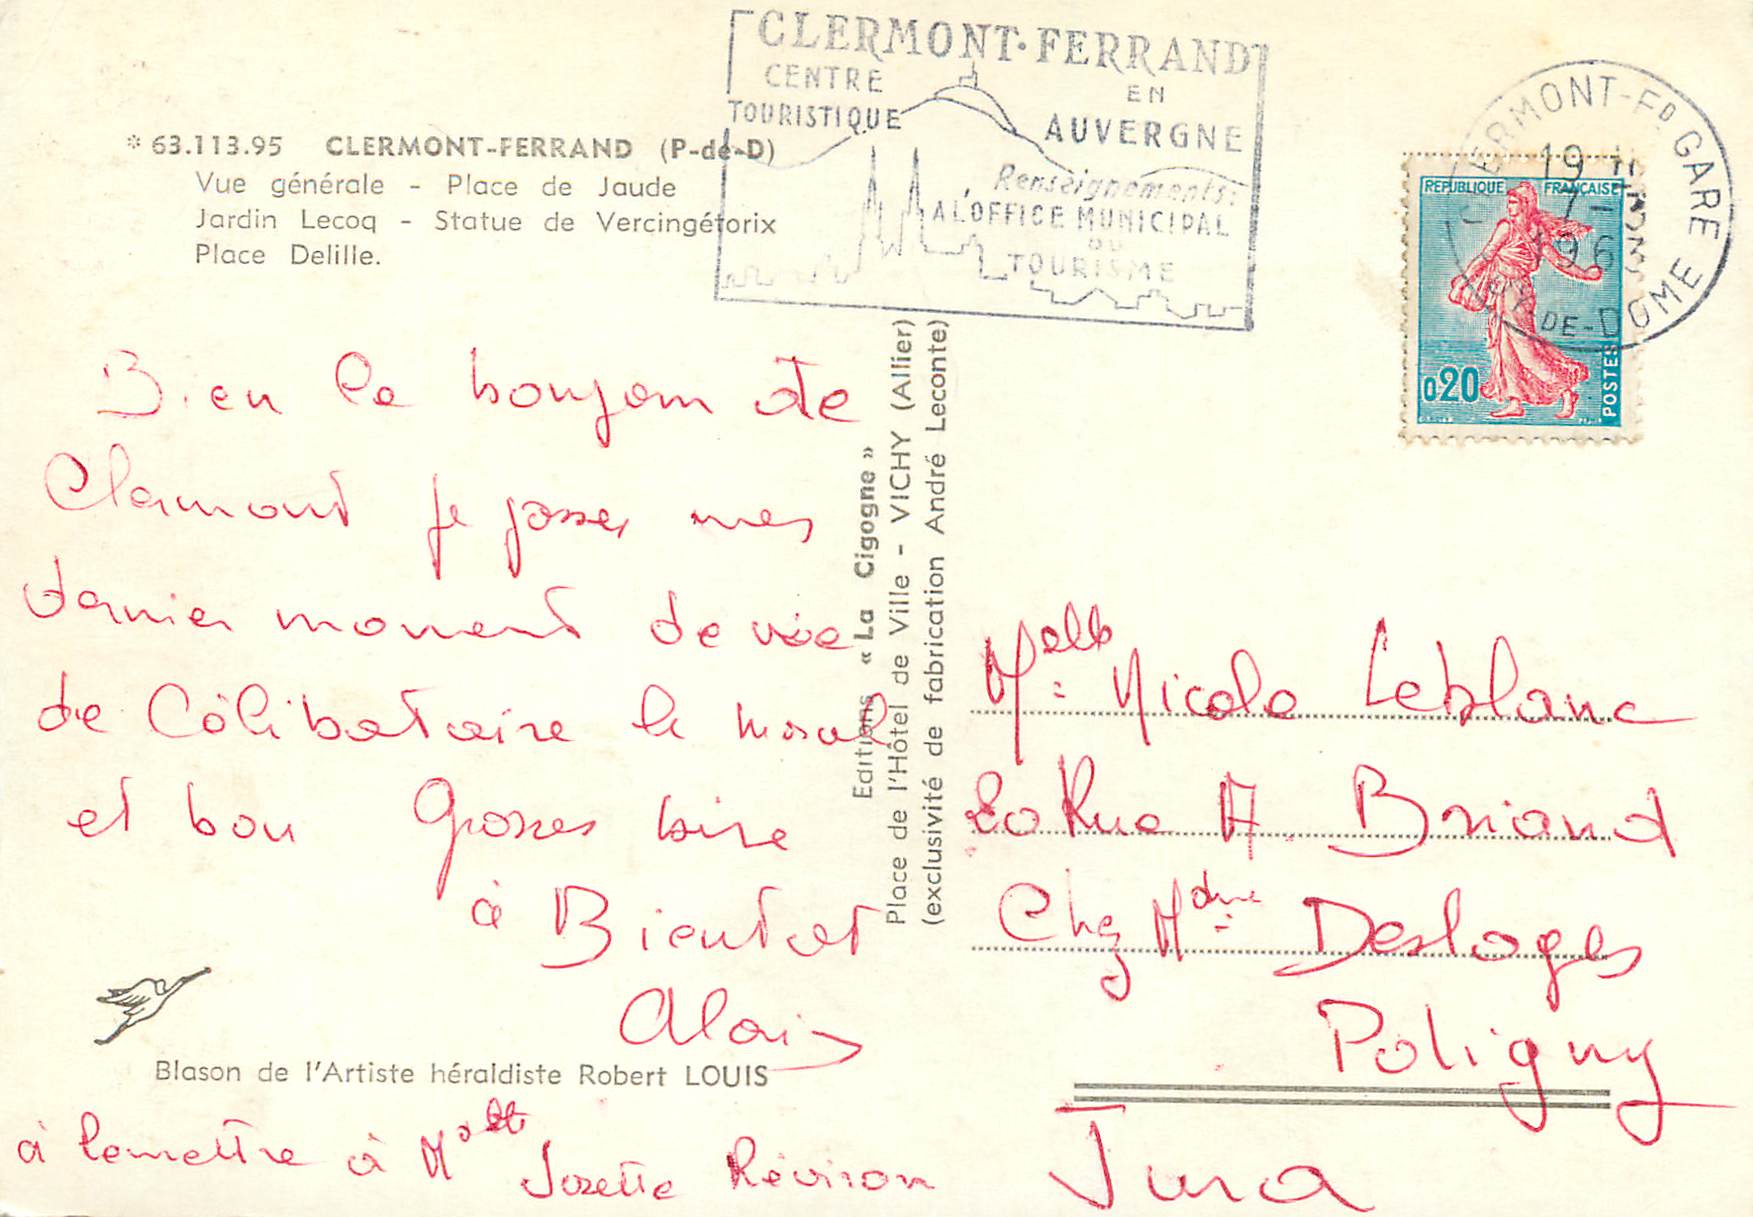 CLERMONT-FERRAND
CENTRE
TOURISTIQUE
EN
AUVERGNE
Renseignements:
A L'OFFICE MUNICIPAL
DU
TOURISME
CLERMONT-FD GARE
19 H
7-
196
PUY-DE-DOME
REPUBLIQUE FRANÇAISE
0,20
POSTES
* 63.113.95 CLERMONT-FERRAND (P-de-D)
Vue générale - Place de Jaude
Jardin Lecoq - Statue de Vercingétorix
Place Delille.
Bien le bonjour de
Clermont je passer mes
dernier moment de vie
de Célibataire le moral
et bon Grosses bise
à Bientot
Alain
Blason de l'Artiste héraldiste Robert LOUIS
à remettre à Melle Josette Réviron
Editions « La Cigogne »
Place de l'Hôtel de Ville - VICHY (Allier)
(exclusivité de fabrication André Leconte)
Melle Nicole Leblanc
20 Rue A. Briand
Chez Mdme Desloges
Poligny
Jura